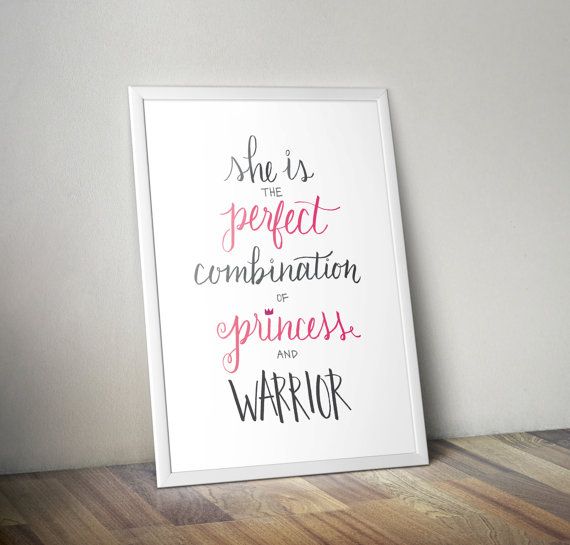 she is
THE
perfect
combination
OF
princess
AND
WARRIOR